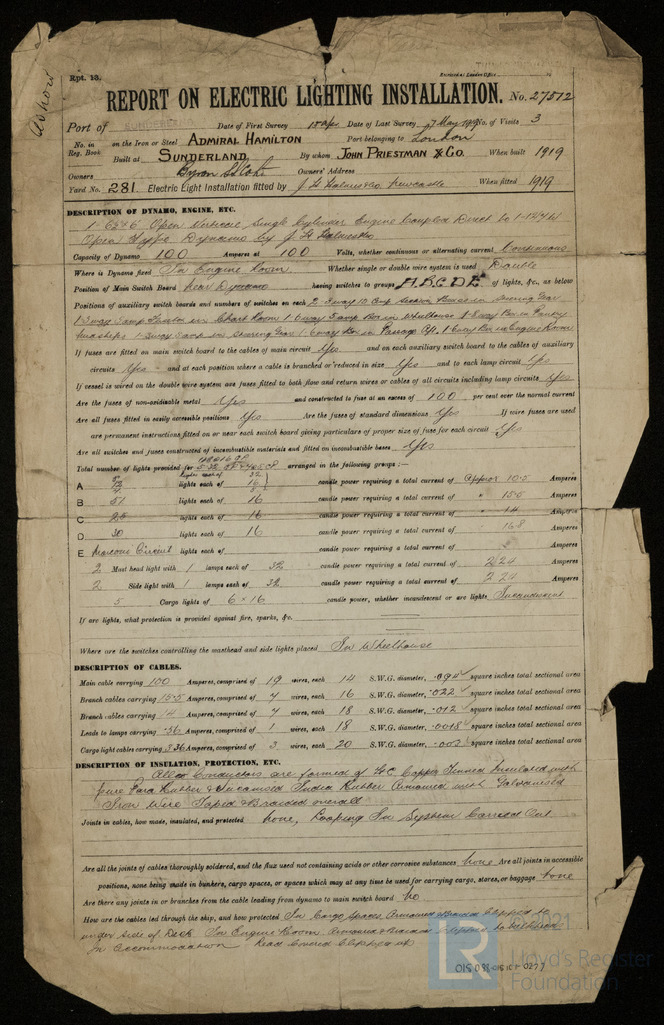 Rpt. 13.
REPORT ON ELECTRIC LIGHTING INSTALLATION. No. 27512
Port of SUNDERLAND Date of First Survey 15 Apr Date of Last Survey 7 May 1919 No. of Visits 3
No. in Reg. Book on the Iron or Steel ADMIRAL HAMILTON Port belonging to London
Built at SUNDERLAND By whom JOHN PRIESTMAN & Co. When built 1919
Owners Byron SS Co Ltd Owners' Address
Yard No. 281 Electric Light Installation fitted by J H Holmes & Co. Newcastle When fitted 1919
DESCRIPTION OF DYNAMO, ENGINE, ETC.
Open Vertical Single Cylinder Engine Coupled Direct to
Open Type Dynamo by J. H. Holmes & Co
Capacity of Dynamo 100 Amperes at 100 Volts, whether continuous or alternating current Continuous
Where is Dynamo fixed In Engine Room Whether single or double wire system is used Double
Position of Main Switch Board Near Dynamo having switches to groups A.B.C.D.E of lights, &c., as below
Positions of auxiliary switch boards and numbers of switches on each 2 3 way 10 amp Section Boxes in Steering Gear
1 3 way 5 amp in Chart Room 1 6 way 5 amp Box in Wheelhouse 1 8 way Box in Pantry
Amidships 1 2 way 5 amp in Steering Gear 1 6 way Box in Passage 1 6 way Box in Engine Room
If fuses are fitted on main switch board to the cables of main circuit Yes and on each auxiliary switch board to the cables of auxiliary
circuits Yes and at each position where a cable is branched or reduced in size Yes and to each lamp circuit Yes
If vessel is wired on the double wire system are fuses fitted to both flow and return wires or cables of all circuits including lamp circuits Yes
Are the fuses of non-oxidizable metal Yes and constructed to fuse at an excess of 100 per cent over the normal current
Are all fuses fitted in easily accessible positions Yes Are the fuses of standard dimensions Yes If wire fuses are used
are permanent instructions fitted on or near each switch board giving particulars of proper size of fuse for each circuit Yes
Are all switches and fuses constructed of incombustible materials and fitted on incombustible bases Yes
Total number of lights provided for arranged in the following groups :—
A lights each of 32 16 8 candle power requiring a total current of Approx 10.5 Amperes
B 51 lights each of 16 candle power requiring a total current of " 15.5 Amperes
C 25 lights each of 16 candle power requiring a total current of " 14 Amperes
D 30 lights each of 16 candle power requiring a total current of " 16.8 Amperes
E Marconi Circuit lights each of candle power requiring a total current of Amperes
2 Mast head light with 1 lamps each of 32 candle power requiring a total current of 2.24 Amperes
2 Side light with 1 lamps each of 32 candle power requiring a total current of 2.24 Amperes
5 Cargo lights of 6 × 16 candle power, whether incandescent or arc lights Incandescent
If arc lights, what protection is provided against fire, sparks, &c.
Where are the switches controlling the masthead and side lights placed In Wheelhouse
DESCRIPTION OF CABLES.
Main cable carrying 100 Amperes, comprised of 19 wires, each 14 S.W.G. diameter, .094 square inches total sectional area
Branch cables carrying 15.5 Amperes, comprised of 7 wires, each 16 S.W.G. diameter, .022 square inches total sectional area
Branch cables carrying 14 Amperes, comprised of 7 wires, each 18 S.W.G. diameter, .012 square inches total sectional area
Leads to lamps carrying .56 Amperes, comprised of 1 wires, each 18 S.W.G. diameter, .0018 square inches total sectional area
Cargo light cables carrying 3.36 Amperes, comprised of 3 wires, each 20 S.W.G. diameter, .003 square inches total sectional area
DESCRIPTION OF INSULATION, PROTECTION, ETC.
All Conductors are formed of H.C. Copper Tinned Insulated with
pure Para Rubber & Vulcanised India Rubber Armoured with Galvanised
Iron Wire Taped & Braided overall
Joints in cables, how made, insulated, and protected none, Looping In System Carried Out
Are all the joints of cables thoroughly soldered, and the flux used not containing acids or other corrosive substances none Are all joints in accessible
positions, none being made in bunkers, cargo spaces, or spaces which may at any time be used for carrying cargo, stores, or baggage none
Are there any joints in or branches from the cable leading from dynamo to main switch board No
How are the cables led through the ship, and how protected In Cargo Spaces Armoured & Braided Clipped to
under side of Deck In Engine Room Armoured & Braided Clipped to
In Accommodation Lead Covered Clipped up
© 2021
LR
Lloyd's Register
Foundation